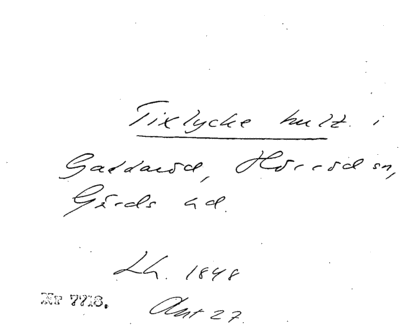 Tixlycke hult i
Gaddaröd, Hörröd sn,
Gärds hd.
Lh. 1848
Nr 7773.
Akt 27.